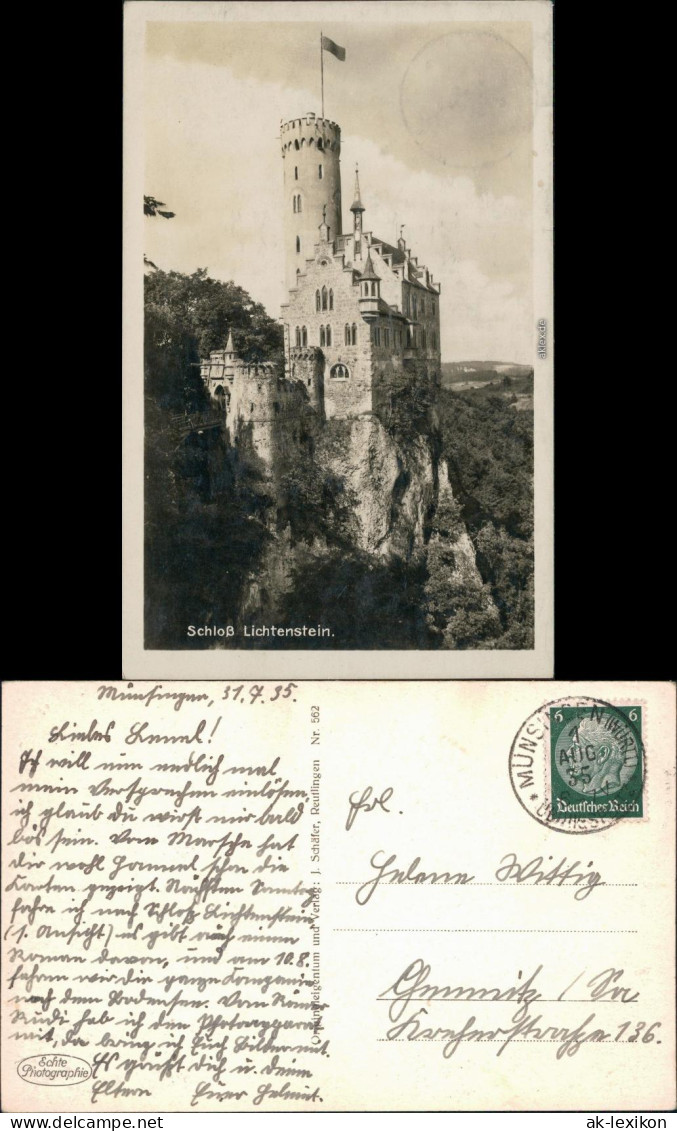 aklex.de
Schloß Lichtenstein.
Münsingen, 31.7.35.
Liebes Lenel!
Ich will nun endlich mal
mein Versprechen einlösen,
ich glaub du wirst mir bald
bös sein. Vom Marsche hat
dir wohl Hammel schon die
Karten gezeigt. Nächsten Sonntag
fahre ich nach Schloß Lichtenstein
(s. Ansicht) es gibt auch einen
Roman davon, und am 10.8.
fahren wir die ganze Kompanie
nach dem Bodensee. Vom
Rudi hab ich den Photoapparat
mit, da bring ich Euch Bilder mit.
Es grüßt dich u. deine
Eltern Euer Helmut.
Echte
Photographie
Originaleigentum und Verlag: J. Schäfer, Reutlingen Nr. 562
MÜNSINGEN (WÜRTT)
1
AUG
35
6 6
Deutsches Reich
Frl.
Helene Wittig
Chemnitz / Sa
Kocherstraße 136.
ak-lexikon ak-lexikon